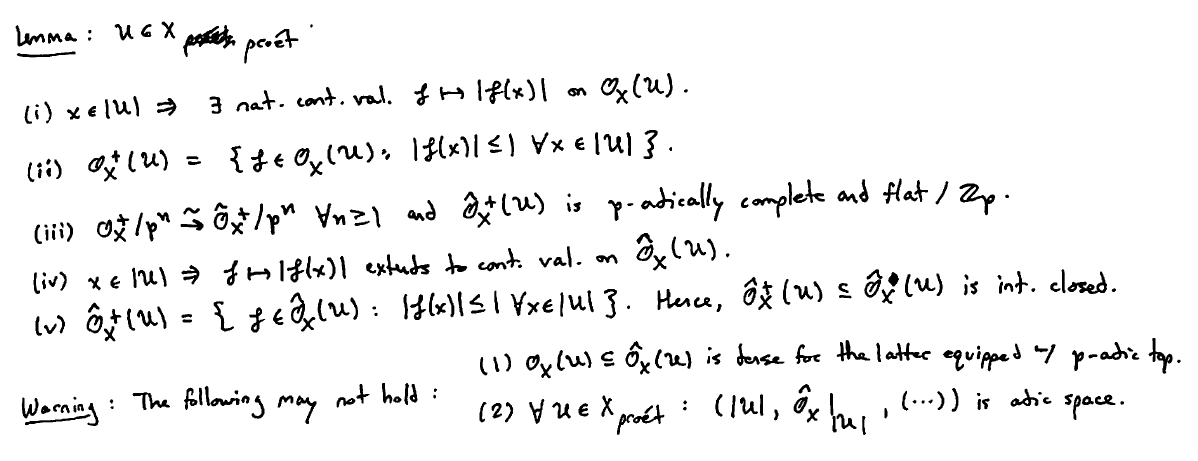 Lemma : U ∈ X proét
(i) x ∈ |U| ⇒ ∃ nat. cont. val. f ↦ |f(x)| on O_X(U).
(ii) O_X^+(U) = { f ∈ O_X(U) : |f(x)| ≤ 1 ∀x ∈ |U| }.
(iii) O_X^+/p^n ⥲ Ô_X^+/p^n ∀n ≥ 1 and Ô_X^+(U) is p-adically complete and flat / ℤ_p.
(iv) x ∈ |U| ⇒ f ↦ |f(x)| extends to cont. val. on Ô_X(U).
(v) Ô_X^+(U) = { f ∈ Ô_X(U) : |f(x)| ≤ 1 ∀x ∈ |U| }. Hence, Ô_X^+(U) ⊆ Ô_X(U) is int. closed.
Warning : The following may not hold :
(1) O_X(U) ⊆ Ô_X(U) is dense for the latter equipped w/ p-adic top.
(2) ∀ U ∈ X_proét : (|U|, Ô_X|_|U|, (...)) is adic space.